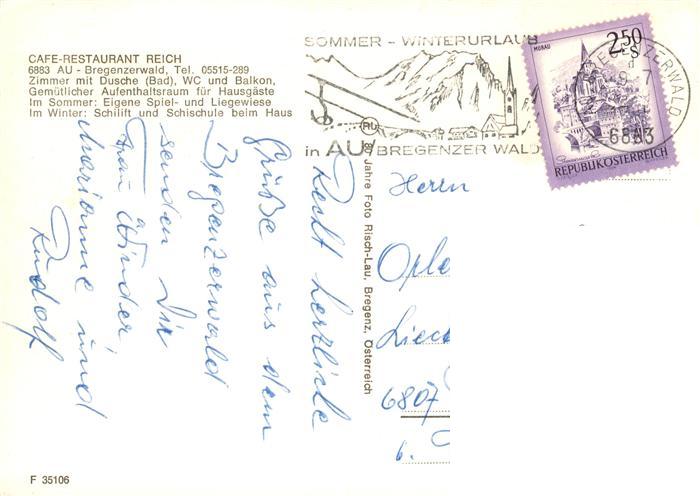 CAFE-RESTAURANT REICH
6883 AU - Bregenzerwald, Tel. 05515-289
Zimmer mit Dusche (Bad), WC und Balkon,
Gemütlicher Aufenthaltsraum für Hausgäste
Im Sommer: Eigene Spiel- und Liegewiese
Im Winter: Schilift und Schischule beim Haus
SOMMER - WINTERURLAUB
in AU BREGENZER WALD
MURAU
2.50
S
REPUBLIK ÖSTERREICH
BREGENZERWALD
6883
Recht herzliche
Grüße aus dem
Bregenzerwald
senden Dir
Frau
Marianne und
Rudolf
RU
Jahre Foto Risch-Lau, Bregenz, Österreich
Herrn
6807
6.
F 35106